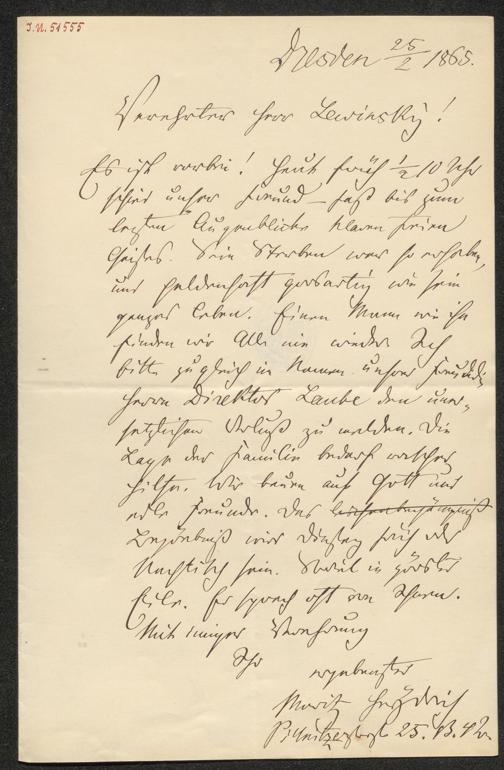 J.N. 51555
Dresden 25/2 1865.
Verehrter Herr Lewinsky!
Es ist vorbei! Heut früh 1/2 10 Uhr
schied unser Freund – fast bis zum
letzten Augenblicke klaren freien
Geistes. Sein Sterben war so erhaben,
und heldenhaft großartig wie sein
ganzes Leben. Einen Mann wie ihn
finden wir Alle nie wieder. Ich
bitte zugleich im Namen unsrer
Herrn Direktor Laube den uner-
setzlichen Verlust zu melden. Die
Lage der Familie bedarf rascher
Hilfe. Wir bauen auf Gott und
edle Freunde. Das Leichenbegängniß
Begräbniß wird Dienstag früh oder
Nachmittag sein. Soviel in größter
Eile. Er sprach oft von Ihnen.
Mit inniger Verehrung
Ihr ergebenster
Moritz Heydrich
25.